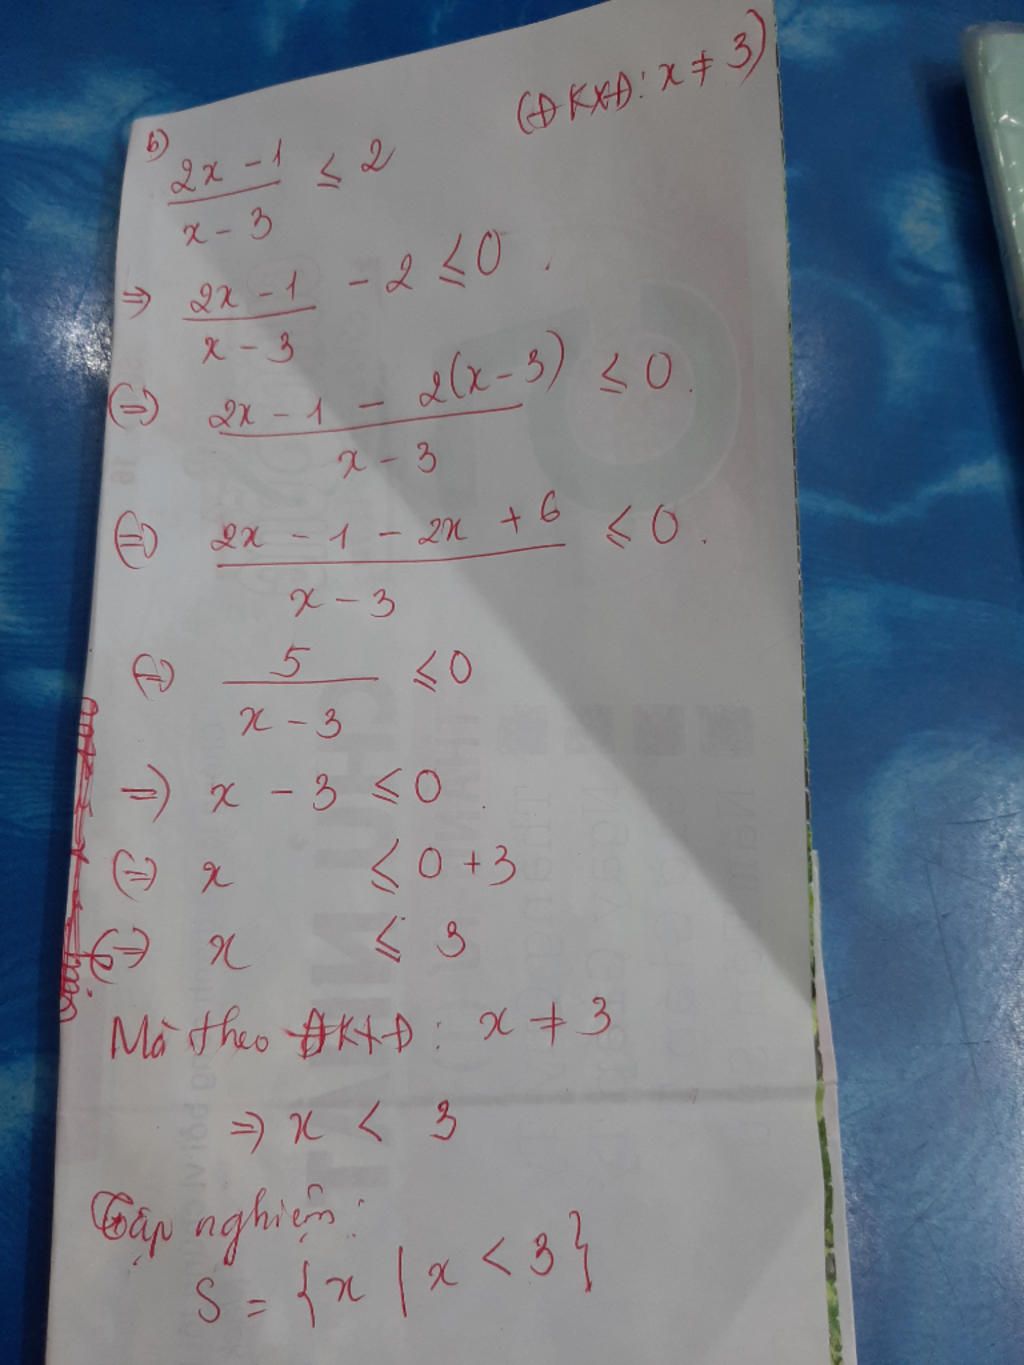 b)
(ĐKXĐ: x ≠ 3)
(2x - 1)/(x - 3) ≤ 2
⇒ (2x - 1)/(x - 3) - 2 ≤ 0.
⇔ (2x - 1 - 2(x - 3))/(x - 3) ≤ 0.
⇔ (2x - 1 - 2x + 6)/(x - 3) ≤ 0.
⇔ 5/(x - 3) ≤ 0
⇒ x - 3 ≤ 0.
⇔ x ≤ 0 + 3
⇔ x ≤ 3
Mà theo ĐKXĐ: x ≠ 3
⇒ x < 3
Tập nghiệm:
S = {x | x < 3}